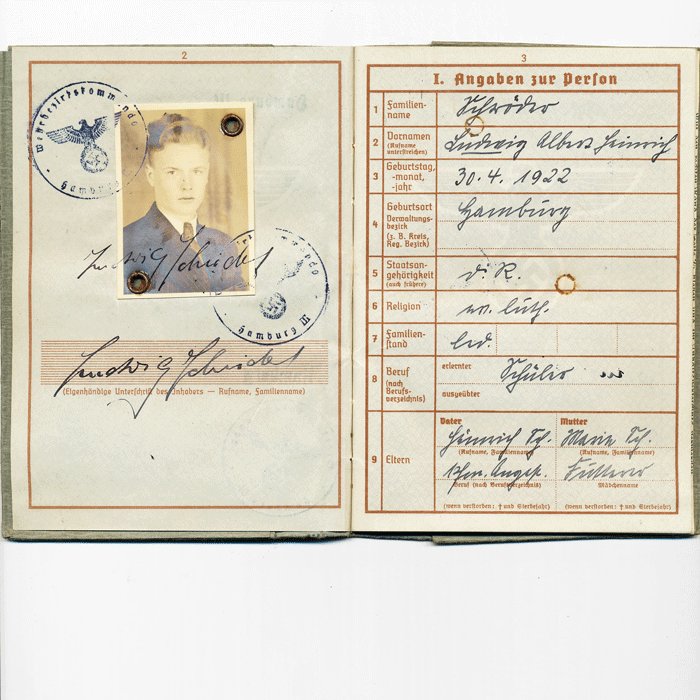 2
Wehrbezirkskommando
Hamburg
Ludwig Schröder
Hamburg III
Ludwig Schröder
(Eigenhändige Unterschrift des Inhabers — Rufname, Familienname)
3
I. Angaben zur Person
1 Familien-
name
Schröder
2 Vornamen
(Rufname
unterstreichen)
Ludwig Albert Heinrich
3 Geburtstag,
-monat,
-jahr
30.4.1922
4 Geburtsort
Verwaltungs-
bezirk
(z. B. Kreis,
Reg. Bezirk)
Hamburg
5 Staatsan-
gehörigkeit
(auch frühere)
d. R.
6 Religion
ev. luth.
7 Familien-
stand
led.
8 Beruf
(nach
Berufs-
verzeichnis)
erlernter
Schüler
ausgeübter
9 Eltern
Vater Mutter
Heinrich Sch. Marie Sch.
(Rufname, Familienname) (Rufname, Familienname)
Kfm. Angest. Fütterer
Beruf (nach Berufsverzeichnis) Mädchenname
(wenn verstorben: † und Sterbejahr) (wenn verstorben: † und Sterbejahr)